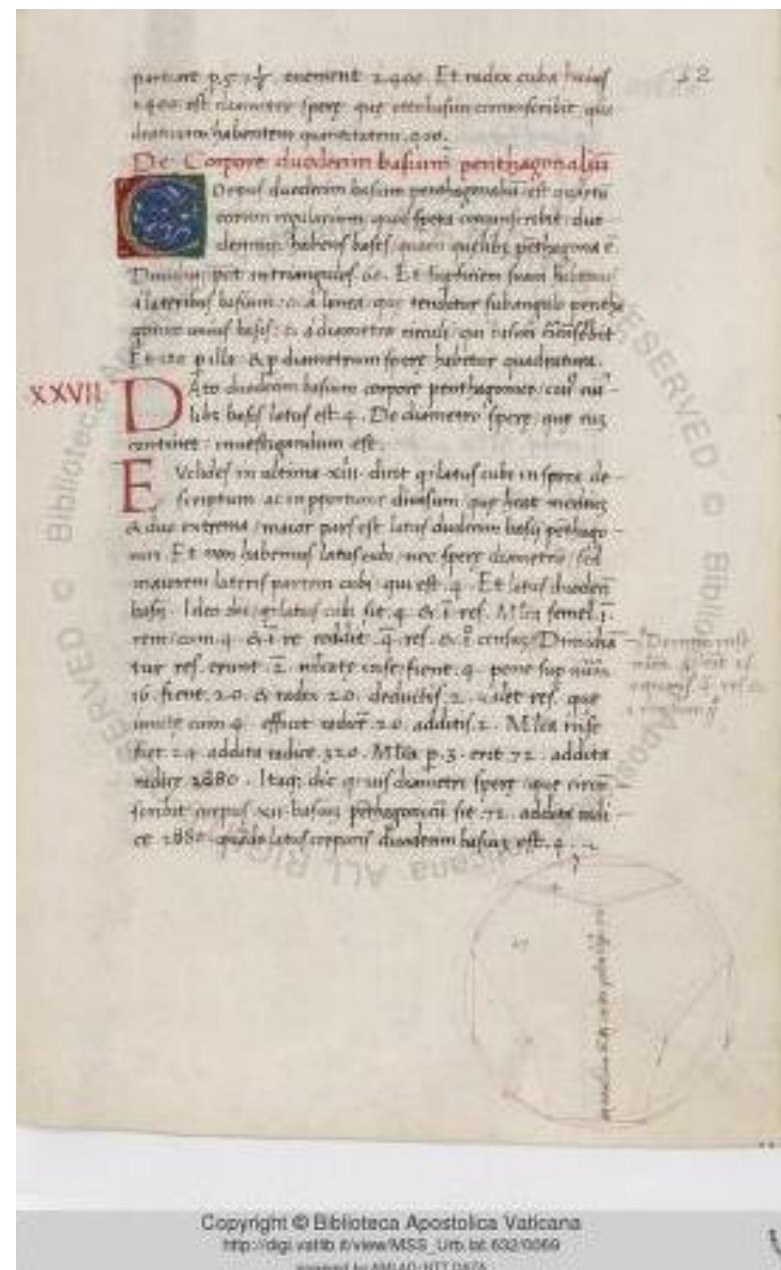 partire p. 57 1/7 evenient 2400. Et radix cuba huius
2400 est diameter sperę que octobasim circumscribit qua
draturam habentem quantitatem
De Corpore duoderim basium penthagonalium
Corpus duoderim basium penthagonaliū est quartū
eorum regularium que spera circumscribit duo
habens bases quarū quelibet pēthagona ē.
Dividi pōt in triangulos 60. Et suphiciem suam habemus
a lateribus basium & a linea que tenditur subangulo pentha
gonico unius basis & a diametro circuli qui basim
Et ita p illa & p diametrum sperę habetur quadratura.
XXVII
Dato duoderim basium corpore penthagonico cuiꝰ cui-
libꝫ basis latus est 4. De diametro sperę que eus
continet investigandum est.
Euclides in ultima xiii. dicit qꝫ latus cubi in spera de-
scriptum ac in pportione divisum que heat medium
& duo extrema maior pars est latus duoderim basiū penthago-
nici. Et non habemus latus cubi nec sperę diametrū sed
maiorem lateris partem cubi que est 4. Et latus duoderī
basiū. Ideo dic qꝫ latus cubi sit 4 & ī res. Mlca semel ī
rem cum 4 & ī re reddit 4̄ res & ī census. Dimidia-
tur res erunt 2̄ mlcate in se fient 4 pone sup numm
16 fient 20 & radix 20 deductis 2 valet res que
iuncte cum 4 efficit radicē 20 additis 2. Mlca in se
fiet 24 addita radice 320. Mlca p. 3. erit 72 addita
radice 2880. Itaqꝫ dic qꝫ diametri sperę que circū
scribit corpus xii basiū pēthagonicū sit 72 addita radi-
ce 2880 quādo latus corporis duoderim basiū est 4.
Copyright © Biblioteca Apostolica Vaticana
http://digi.vatlib.it/view/MSS_Urb.lat.632/0069
powered by AMLAD, NTT DATA